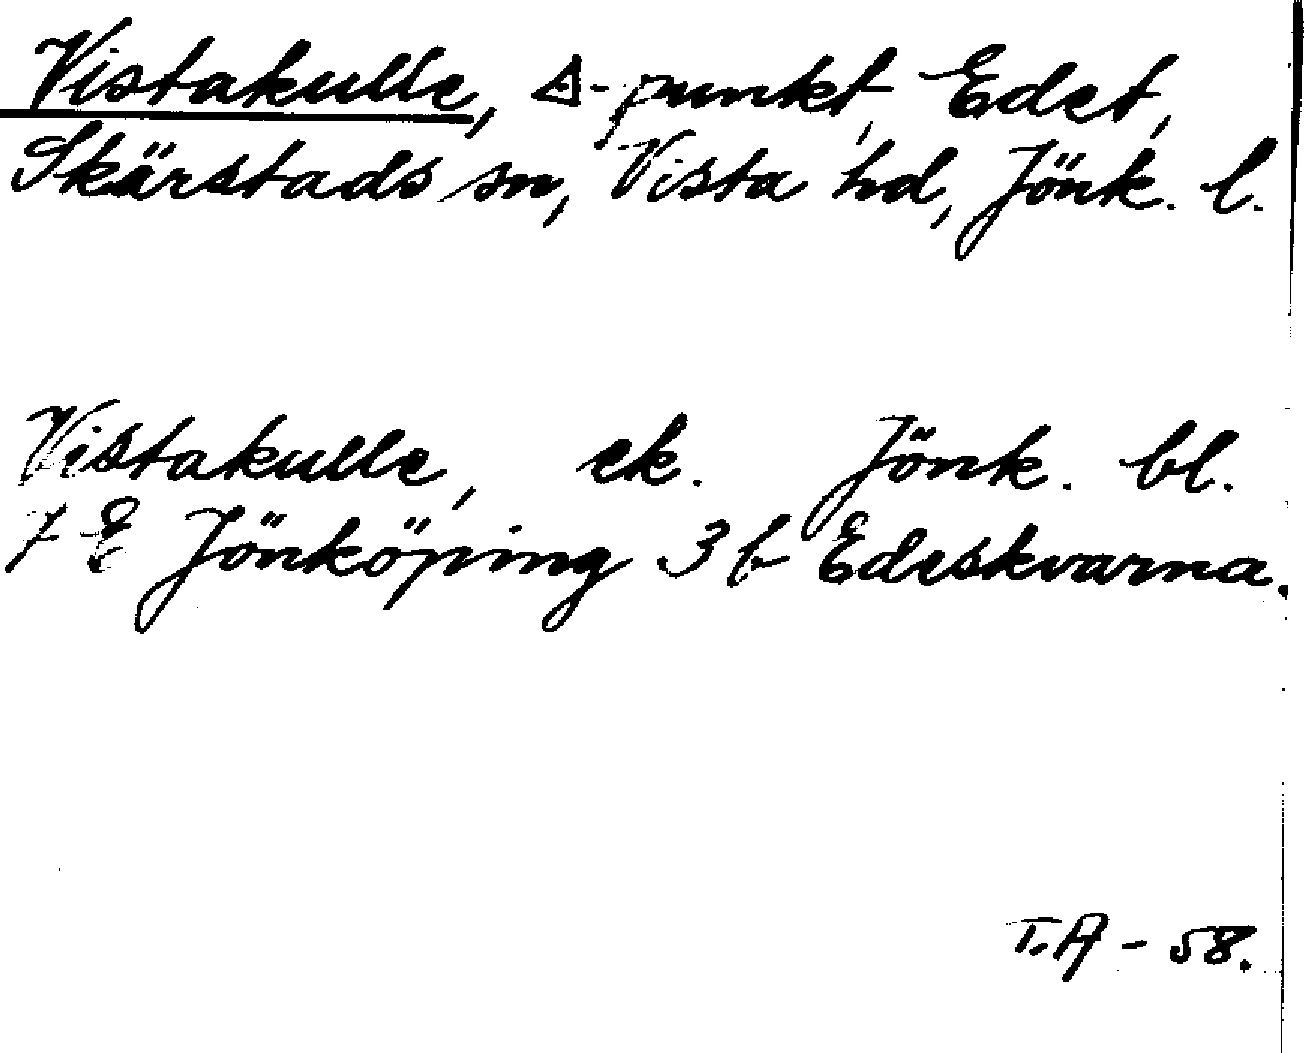 Vistakulle, △-punkt, Edet,
Skärstads sn, Vista hd, Jönk. l.
Vistakulle, ek. Jönk. bl.
7 E Jönköping 3 b Edeskvarna.
T.A - 58.